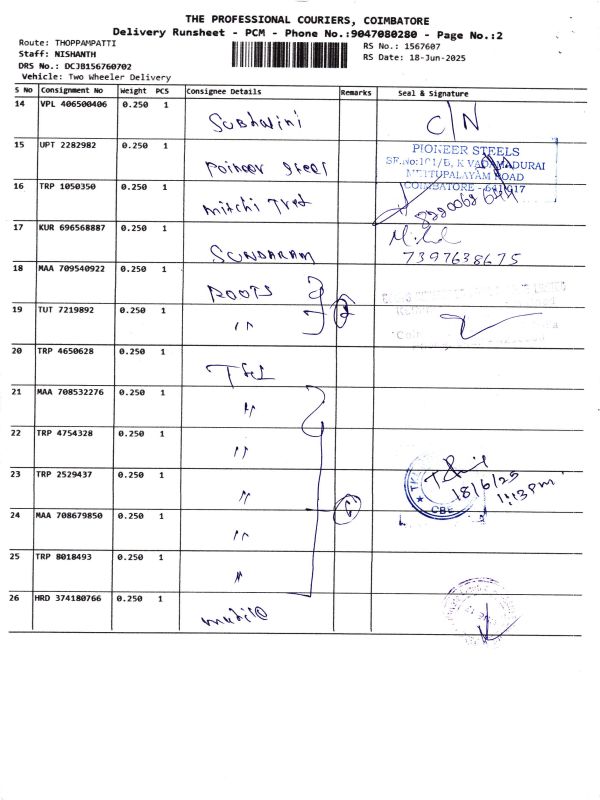 THE PROFESSIONAL COURIERS, COIMBATORE
Delivery Runsheet - PCM - Phone No.:9047080280 - Page No.:2
Route: THOPPAMPATTI
RS No.: 1567607
Staff: NISHANTH
RS Date: 18-Jun-2025
DRS No.: DCJB156760702
Vehicle: Two Wheeler Delivery
S No Consignment No Weight PCS Consignee Details Remarks Seal & Signature
14 VPL 406500406 0.250 1 Subhalini C/N
15 UPT 2282982 0.250 1 Poineer Steel
PIONEER STEELS
SF.No:101/B, K VADAMADURAI
METTUPALAYAM ROAD
COIMBATORE - 641 017
16 TRP 1050350 0.250 1
17 KUR 696568887 0.250 1 SUNDARAM 7397638675
18 MAA 709540922 0.250 1 ROOTS
19 TUT 7219892 0.250 1 "
20 TRP 4650628 0.250 1
21 MAA 708532276 0.250 1 "
22 TRP 4754328 0.250 1 "
23 TRP 2529437 0.250 1 "
18/6/25
1:13pm
CBE
24 MAA 708679850 0.250 1 "
25 TRP 8018493 0.250 1 "
26 HRD 374180766 0.250 1